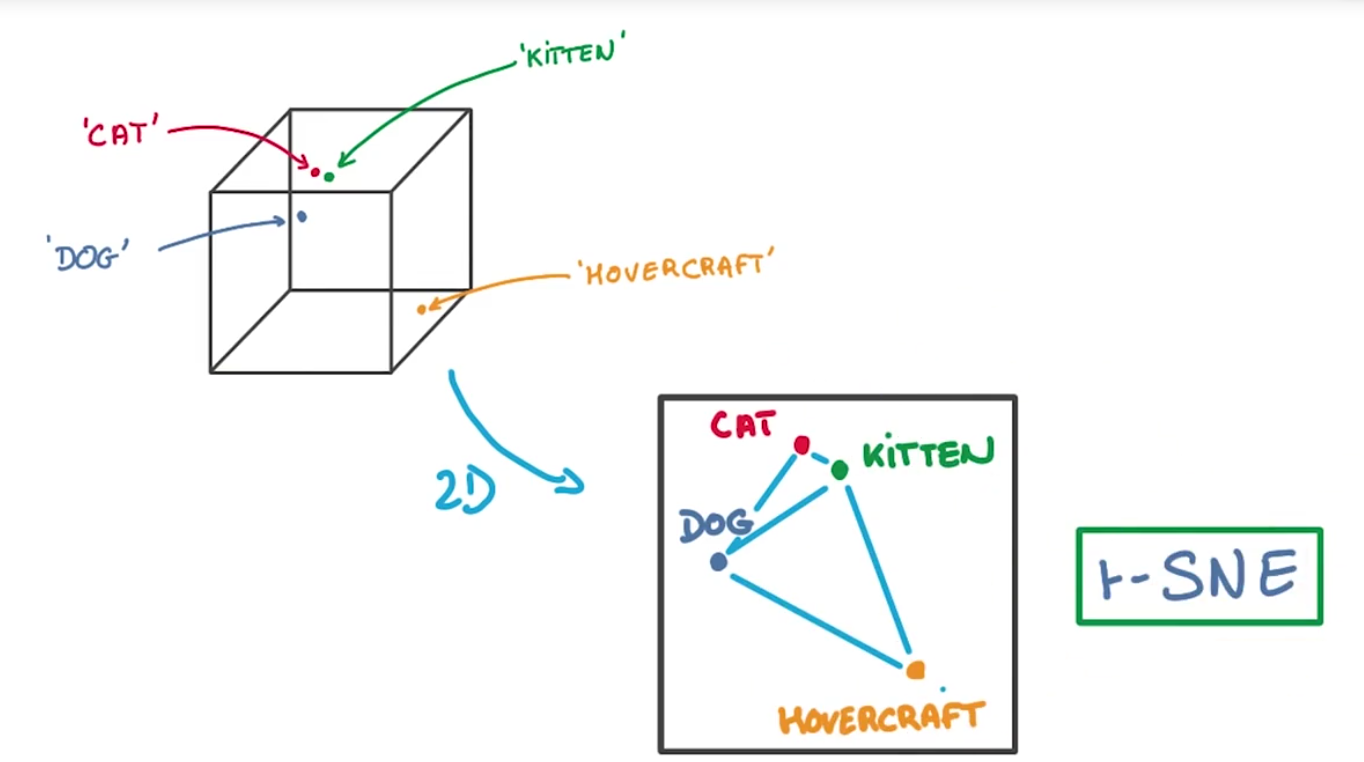 'KITTEN'
'CAT'
'DOG'
'HOVERCRAFT'
2D
CAT
KITTEN
DOG
HOVERCRAFT
t-SNE